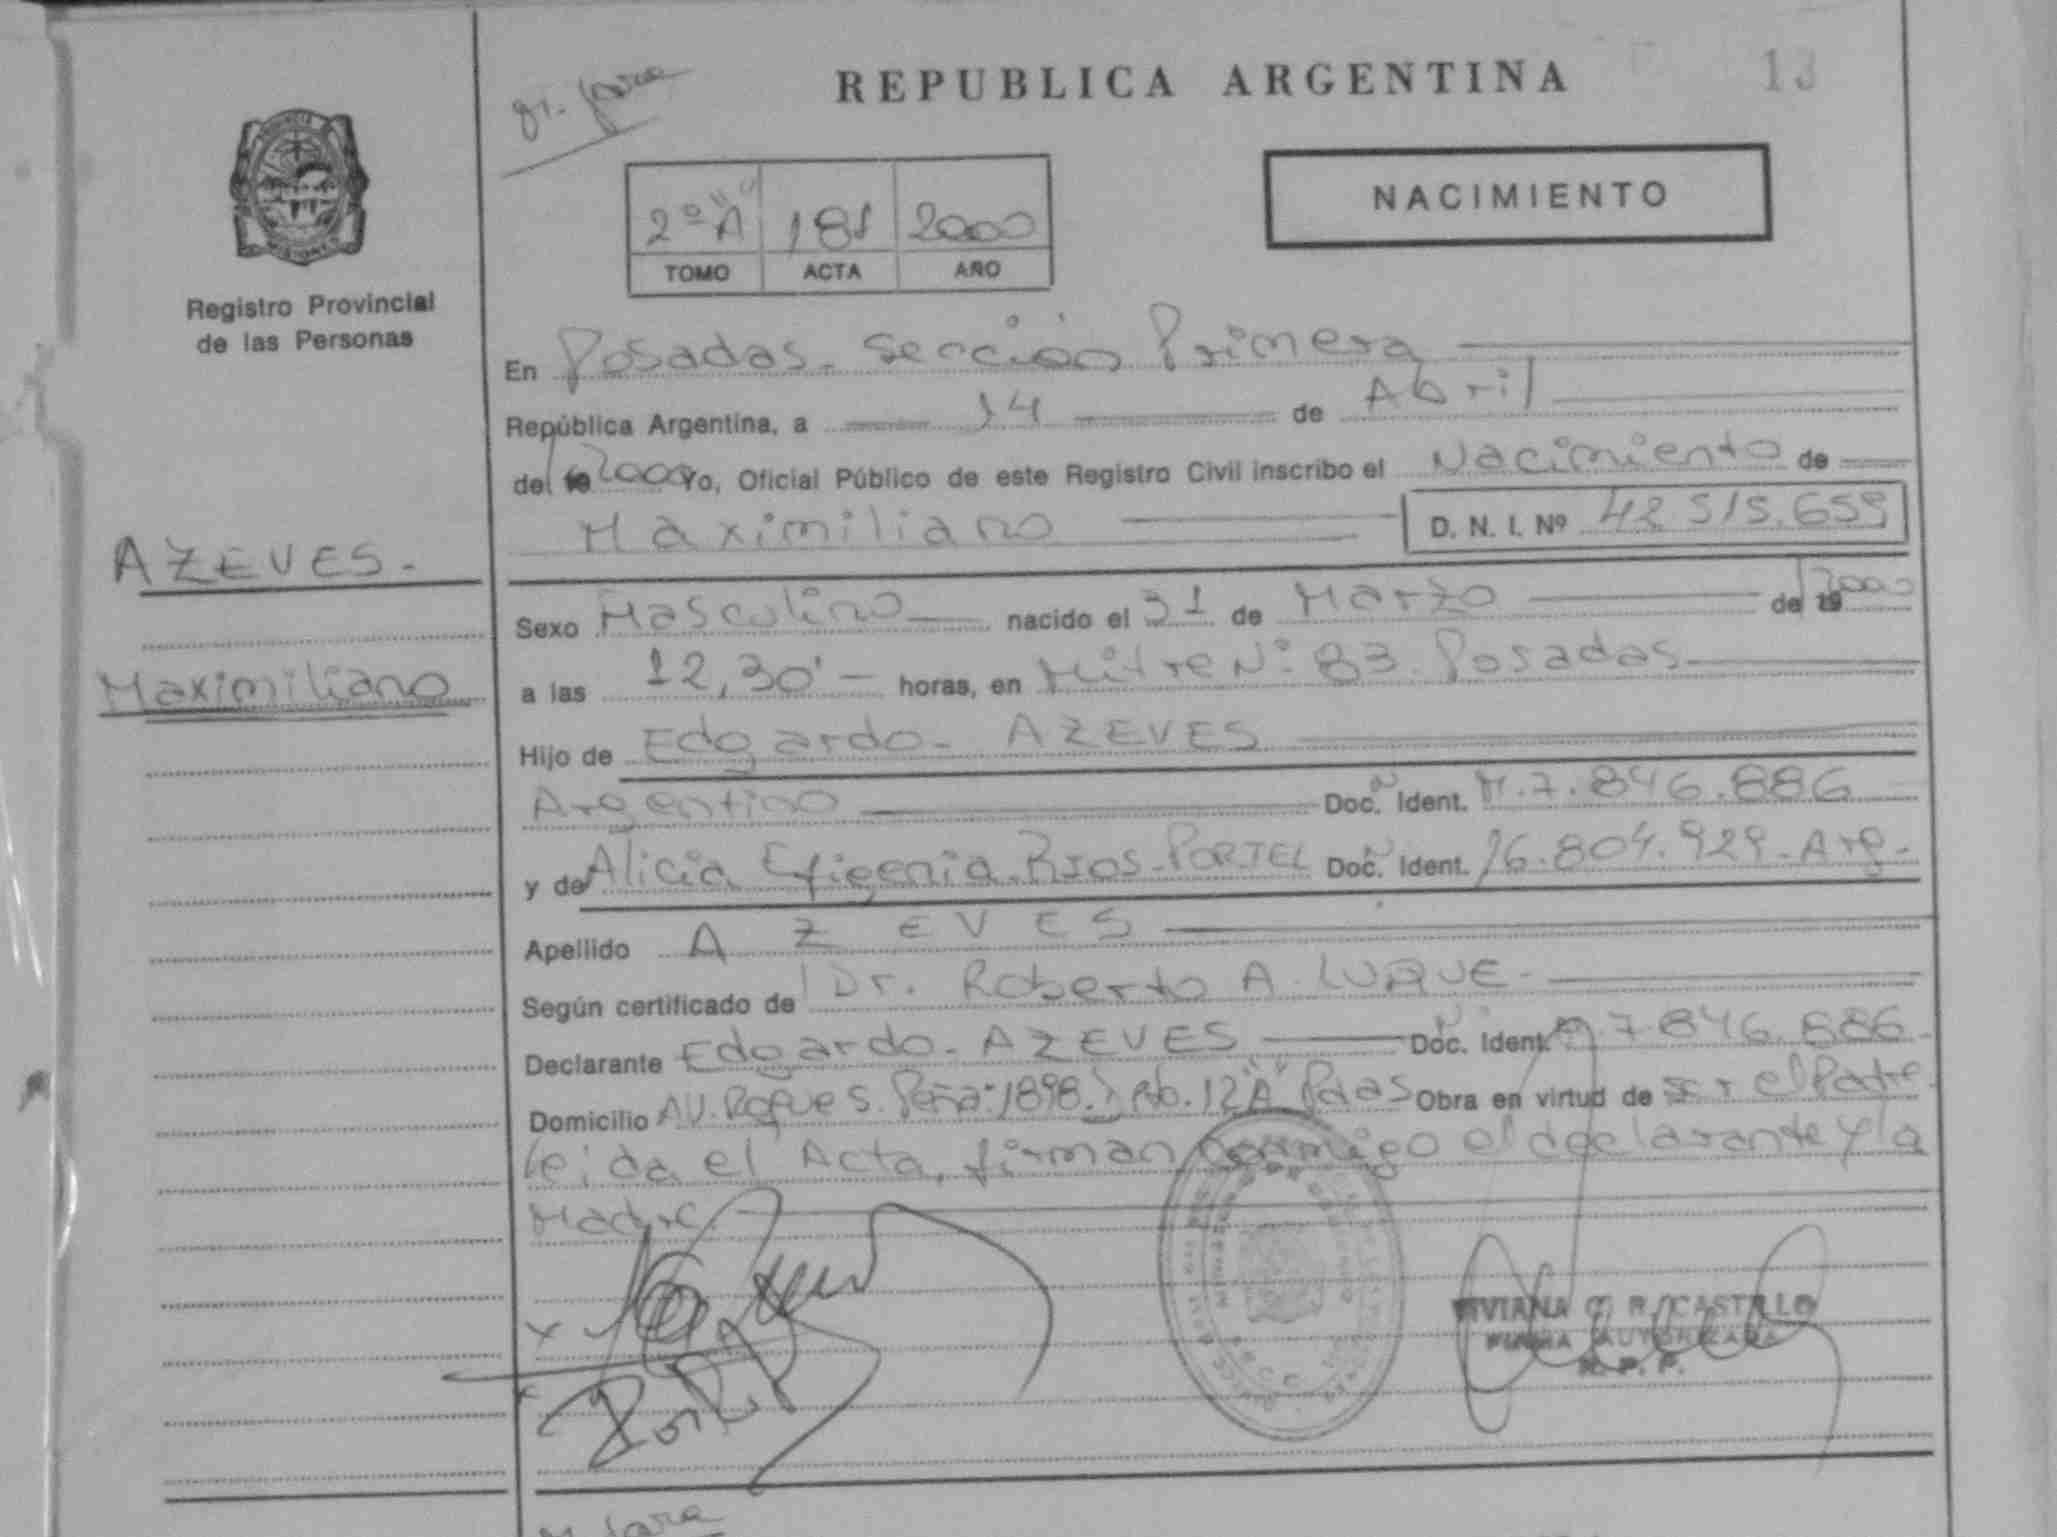 REPUBLICA ARGENTINA
13
NACIMIENTO
2º "A" 181 2000
TOMO ACTA AÑO
Registro Provincial
de las Personas
En Posadas - Sección Primera
República Argentina, a 14 de Abril
del 2000 Yo, Oficial Público de este Registro Civil inscribo el Nacimiento de
Maximiliano D. N. I. Nº 42 515.659
AZEVES.
Maximiliano
Sexo Masculino nacido el 31 de Marzo del 2000
a las 12,30' horas, en Mitre Nº 83. Posadas
Hijo de Edgardo - AZEVES
Argentino Doc. Ident. M.7.846.886
y de Alicia Efigenia Rios - PORTEL Doc. Ident. 16.804.929 - Arg.
Apellido AZEVES
Según certificado de Dr. Roberto A. LUQUE -
Declarante Edgardo - AZEVES Doc. Ident. 7.846.886 -
Domicilio AV. Roque S. Peña 1898. 12 "A" Pdas Obra en virtud de ser el Padre.
Leida el Acta, firman conmigo el declarante y la
Madre.
VIVIANA C. R. CASTILLO
FIRMA AUTORIZADA
R. P. P.